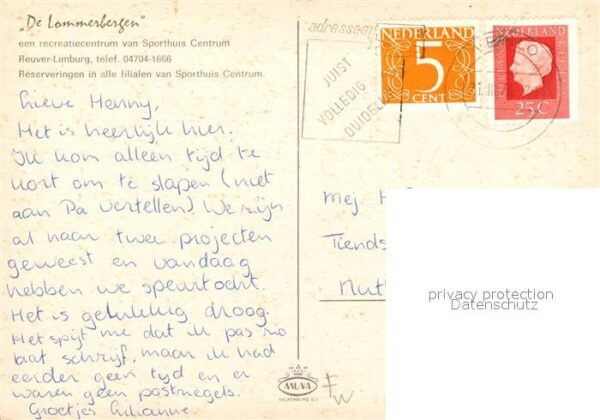 „De Lommerbergen"
een recreatiecentrum van Sporthuis Centrum
Reuver-Limburg, telef. 04704-1666
Reserveringen in alle filialen van Sporthuis Centrum.
Lieve Henny,
Het is heerlijk hier.
Ik kom alleen tijd te
kort om te slapen (niet
aan Pa vertellen) We zijn
al naar twee projecten
geweest en vandaag
hebben we speurtocht.
Het is gelukkig droog.
Het spijt me dat ik pas zo
laat schrijf, maar ik had
eerder geen tijd en er
waren geen postzegels.
Groetjes Julianne
adresseer
JUIST
VOLLEDIG
DUIDELIJK
NEDERLAND
5
CENT
NEDERLAND
25C
Mej. H
Tiends
Nut
privacy protection
Datenschutz
MUVA
VALKENBURG (L.)